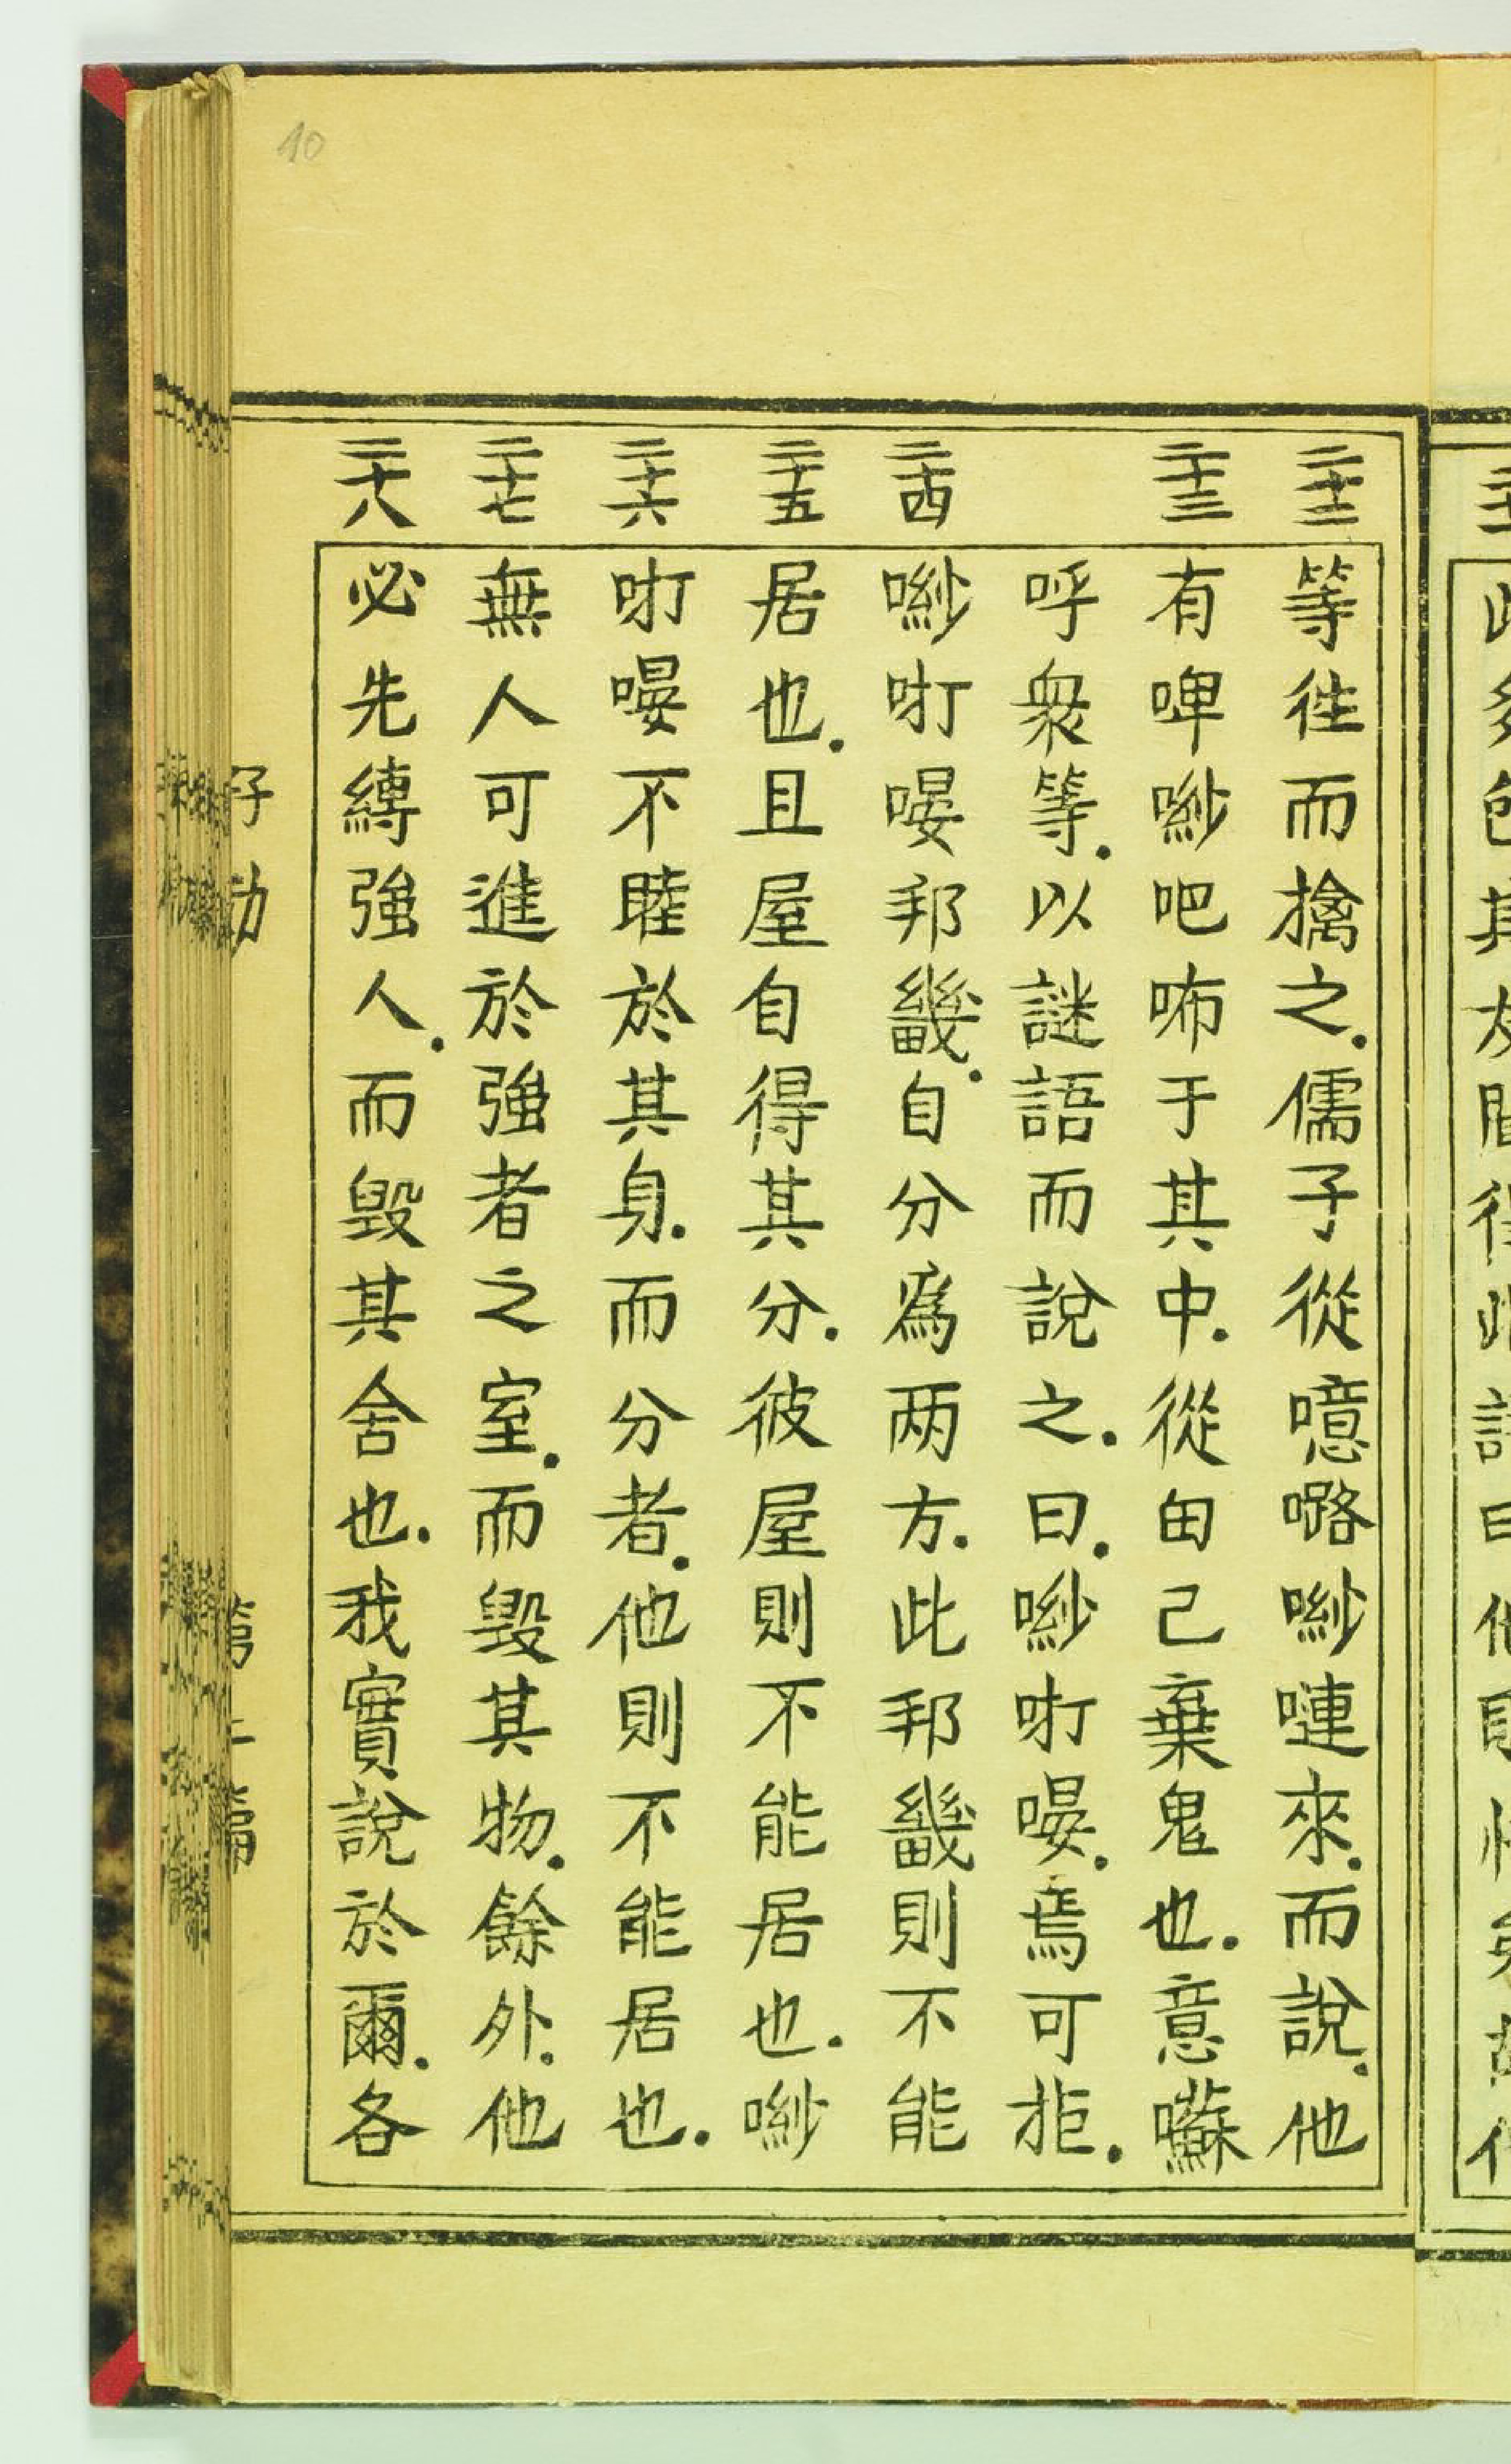 10
二十二
等徃而擒之.儒子從噫㗉㘇嗹來.而說.他
二十三
有啤㘇吧咘于其中.從由己棄鬼也.意囌
呼衆等.以謎語而說之.曰.㘇呀㖢.焉可拒.
二十四
㘇㖢邦畿.自分爲两方.此邦畿則不能
二十五
居也.且屋自得其分.彼屋則不能居也.㘇
二十六
不睦於其身.而分者.他則不能居也.
二十七
無人可進於強者之室.而毁其物.餘外.他
二十八
必先縛強人.而毁其舍也.我實說於爾.各